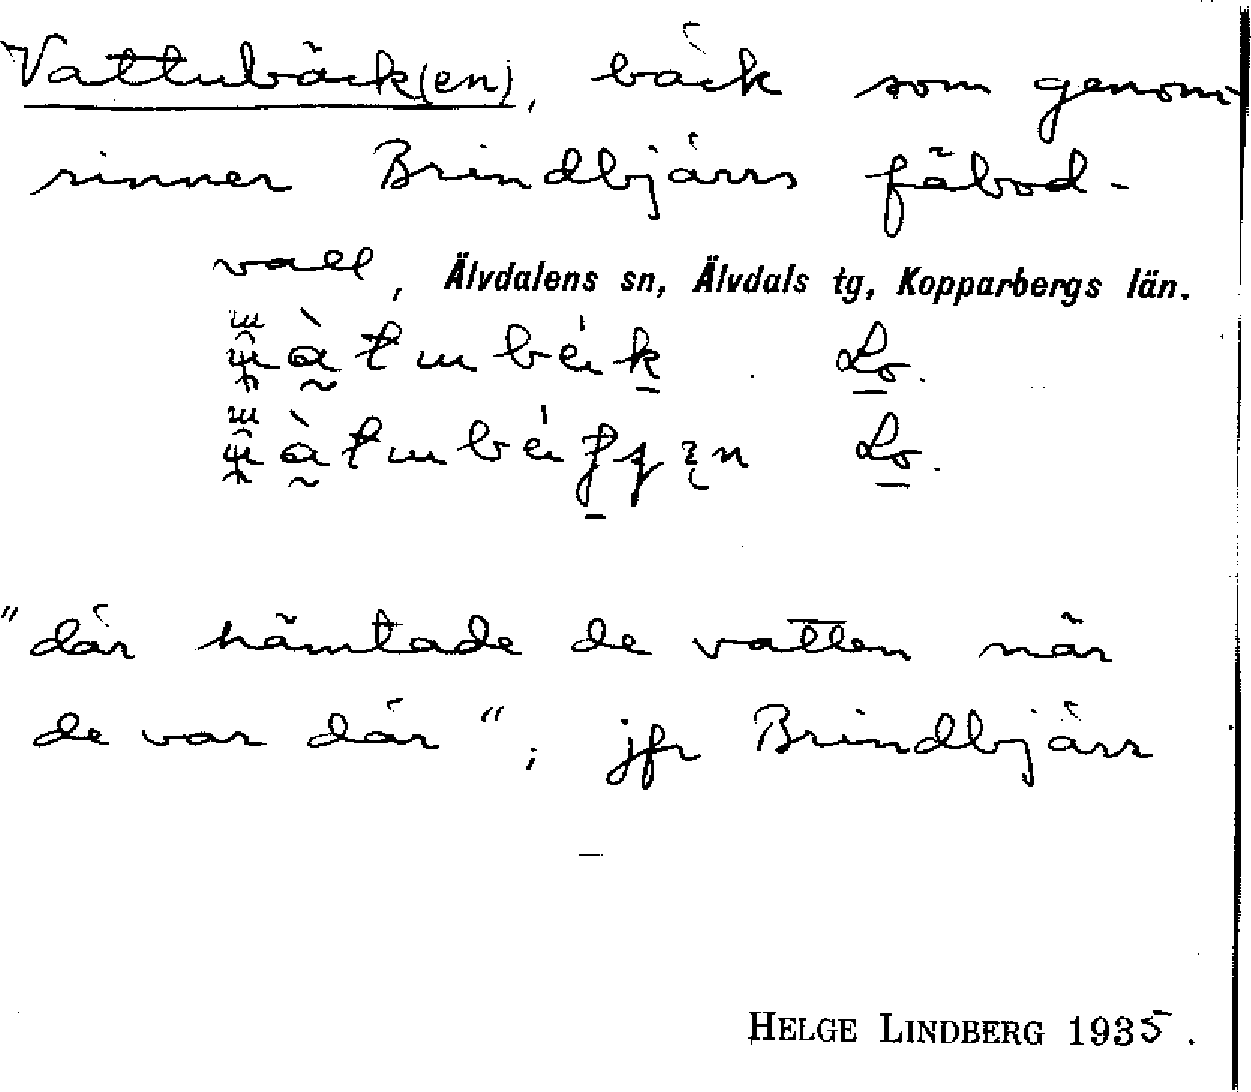 Vattubäck(en), bäck som genom-
rinner Brindbjärrs fäbod-
vall, Älvdalens sn, Älvdals tg, Kopparbergs län.
Lo.
Lo.
"där hämtade de vatten när
de var där"; jfr Brindbjärr
—
HELGE LINDBERG 1935.